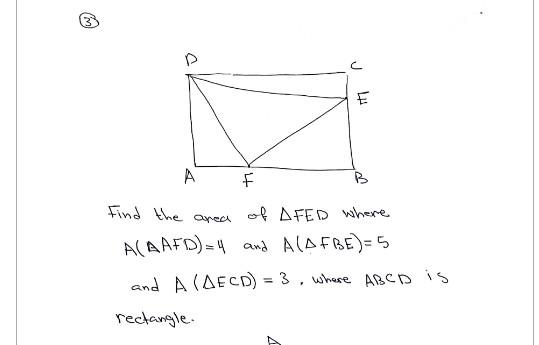 3
D
C
E
A
F
B
Find the area of ΔFED where
A(ΔAFD)=4 and A(ΔFBE)=5
and A(ΔECD) = 3, where ABCD is
rectangle.